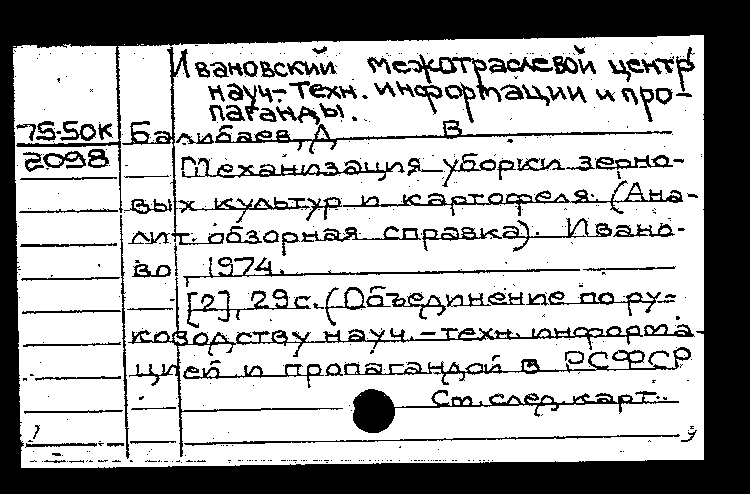 Ивановский межотраслевой центр
науч-техн. информации и про-
паганды.
75-50К Балибаев, Д В
2098 Механизация уборки зерно-
вых культур и картофеля. (Ана-
лит. обзорная справка). Ивано-
во, 1974.
[2], 29 с. (Объединение по ру-
ководству науч.-техн. информа-
цией и пропагандой в РСФСР
См. след. карт.